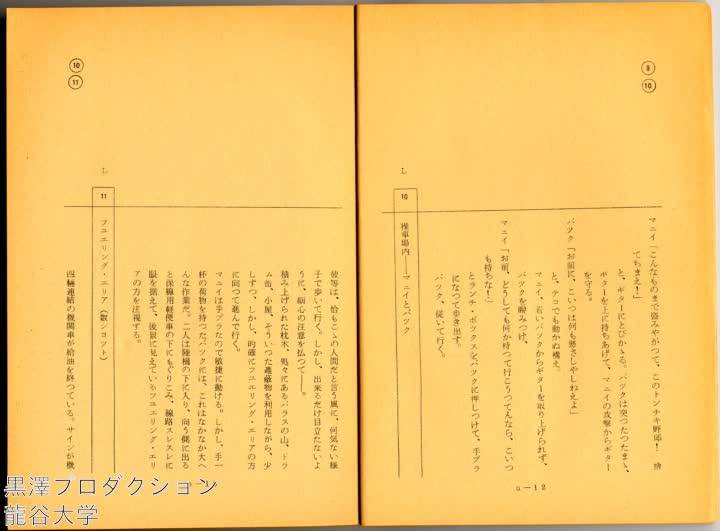 ⑨
⑩
マニイ「こんなものまで盗みやがつて、このトンチキ野郎! 捨
てちまえ!」
と、ギターにとびかゝる。バツクは突つたつたまゝ、
ギターを上に持ちあげて、マニイの攻撃からギター
を守る。
バツク「お前に、こいつは何も悪さしやしねえよ」
と、テコでも動かぬ構え。
マニイ、若いバツクからギターを取り上げられず、
バツクを睨みつけ、
マニイ「お前、どうしても何か持つて行こうてんなら、こいつ
も持ちな!」
とランチ・ボツクスをバツクに押しつけて、手ブラ
になつて歩き出す。
バツク、従いて行く。
L
10
操車場内――マニイとバツク
a-12
⑩
⑪
彼等は、恰もこゝの人間だと言う風に、何気ない様
子で歩いて行く。しかし、出来るだけ目立たないよ
うに、細心の注意を払つて――。
積み上げられた枕木、処々にあるバラスの山、ドラ
ム缶、小屋、そういつた遮蔽物を利用しながら、少
しずつ、しかし、的確にフユエリング・エリアの方
に向つて進んで行く。
マニイは手ブラなので敏捷に動ける。しかし、手一
杯の荷物を持つたバツクには、これはなかなか大へ
んな作業だ。二人は陸橋の下に入り、向う側に出る
と保線用軽便車の下にもぐりこみ、線路スレスレに
眼を据えて、後景に見えているフユエリング・エリ
アの方を注視する。
L
11
フユエリング・エリア(数シヨツト)
四輛連結の機関車が給油を終つている。サインが機
黒澤プロダクション
龍谷大学